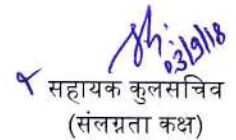 03/9/18
सहायक कुलसचिव
(संलग्नता कक्ष)